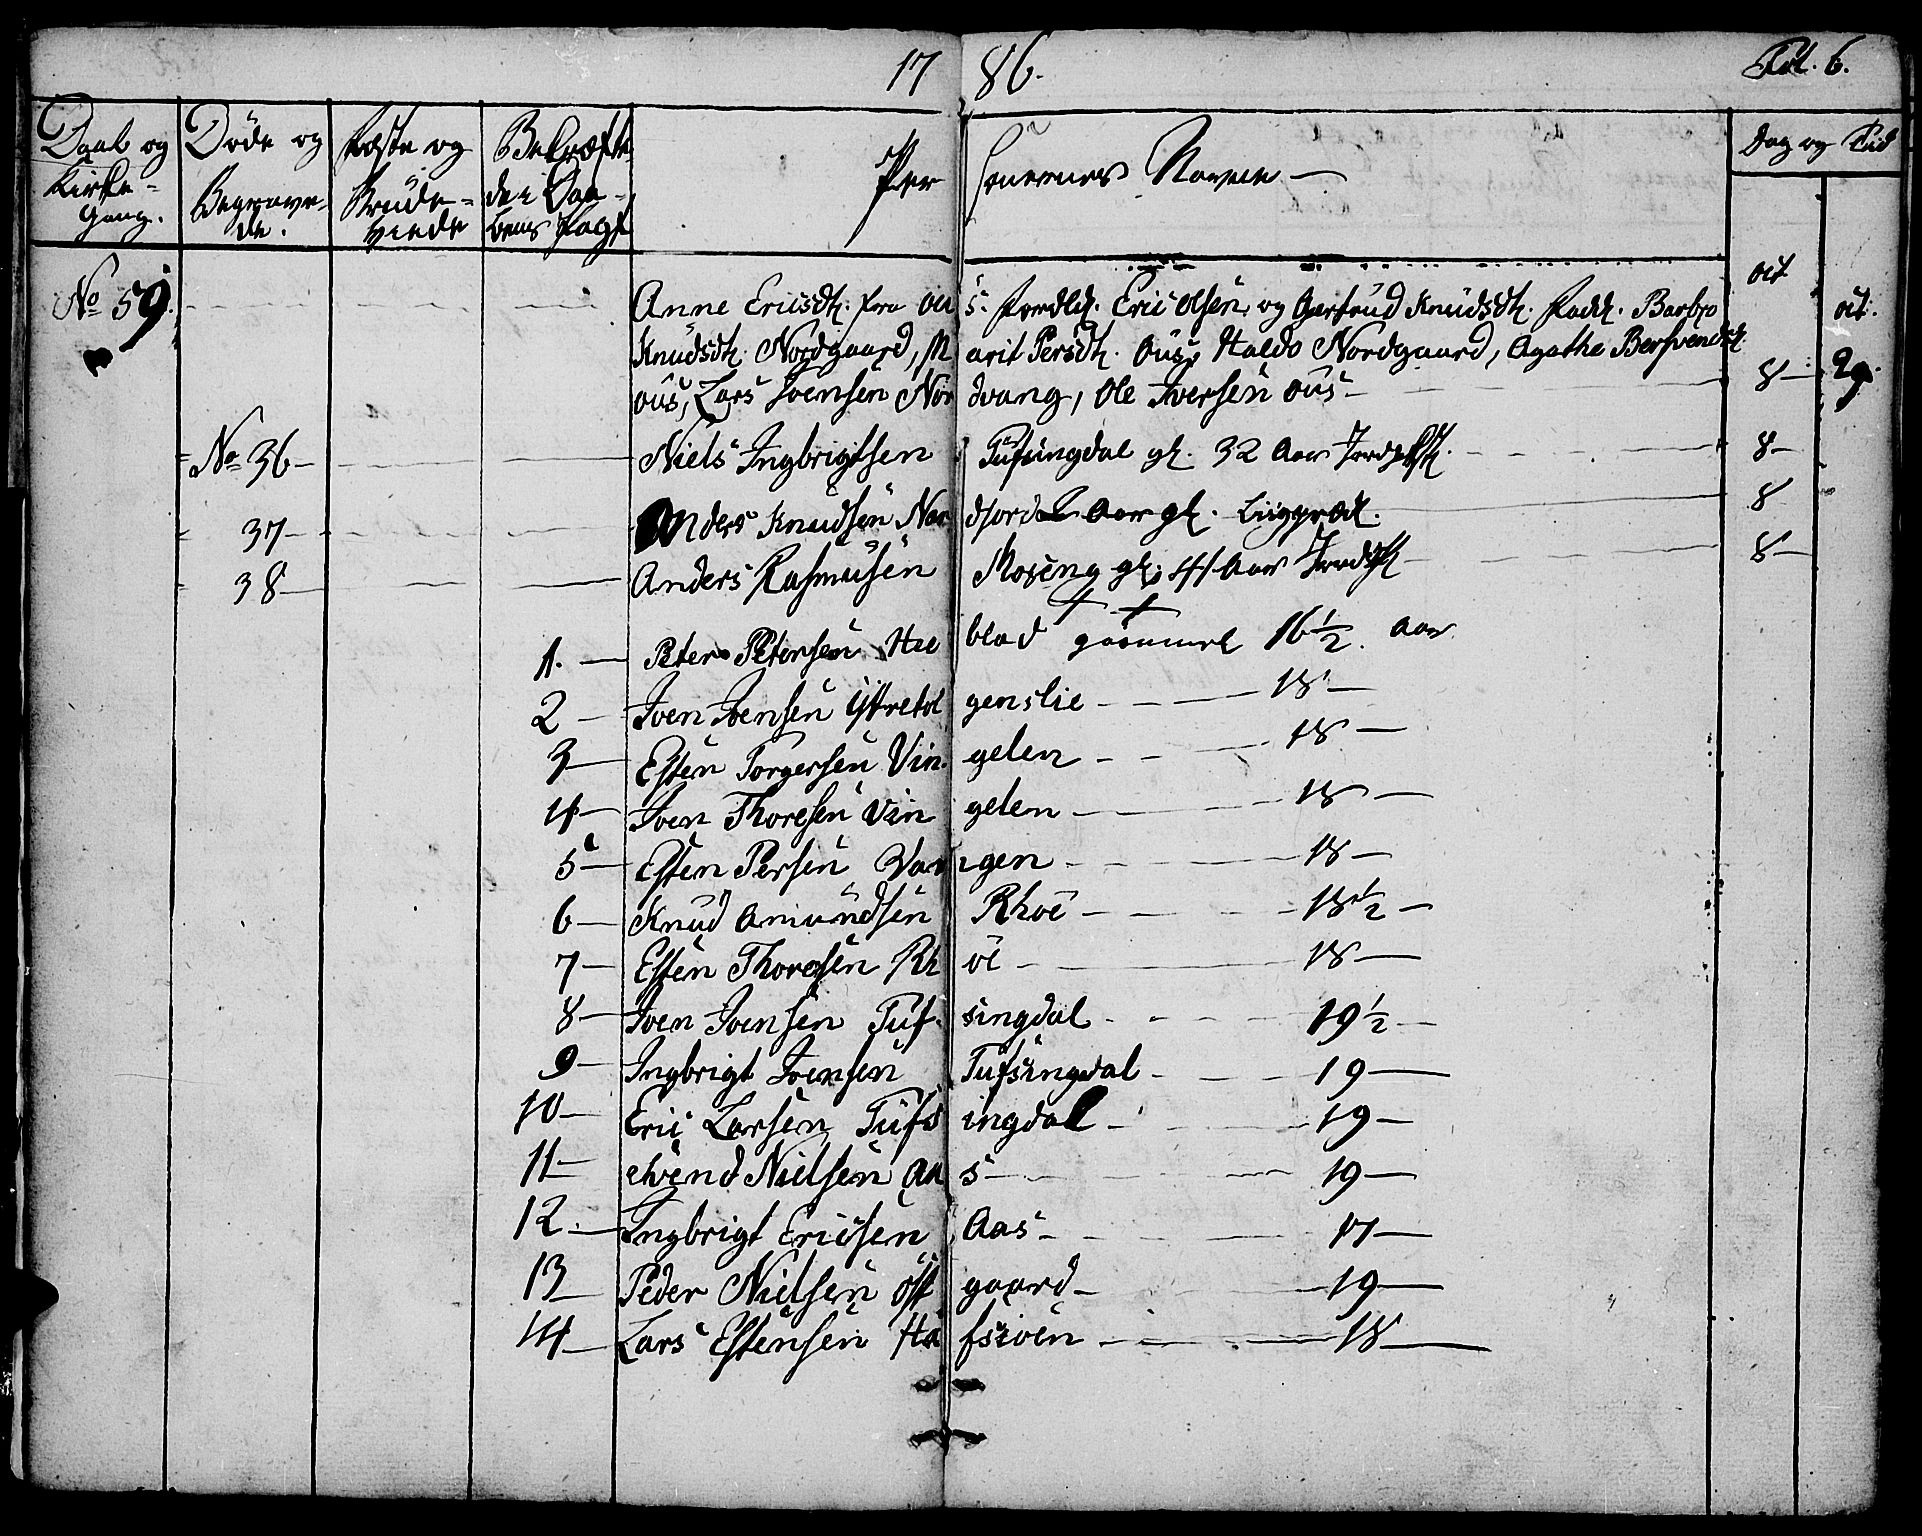 1786. Fol. 6.
Daab og Kirke-Gang. Døde og Begravede. Fæste og Brude-viede Bekræfte den Daabens Pagt Personernes Navne Dag og Tid
No 59. Anne Ericsdt. fra Ous. Foreld. Eric Olsen, og Gertrud Knüdsdt. Fadd. Barbro oct oct.
Knüdsdt. Nordgaard, Marit Persdt. Ous, Haldo Nordgaard, Agathe Bersvendst.
Ous, Lars Joensen Nordvang, Ole Iversen Ous 8 29.
No 36 Niels Ingbrigtsen Tüfsingdal gl. 32 Aar Jordpst. 8
37 Anders Knudsen Nordjord 2 Aar gl. Liigpræd. 8
38 Anders Rasmusen Moseng gl. 41 Aar Jordpst 8
1. Peter Petersen Heeblad gammel 16 1/2 Aar
2 Joen Joensen Yttretolgenslie 18
3 Esten Torgersen Vingelen 18
4 Joen Thoresen Vingelen 18
5 Esten Persen Vangen 18
6 Knud Amundsen Rhoe 18 1/2
7 Esten Thoresen Rhoe 18
8 Joen Joensen Tufsingdal 19 1/2
9 Ingbrigt Joensen Tufsingdal 19
10 Eric Larsen Tüfsingdal 19
11 Svend Nielsen Aas 19
12 Ingbrigt Ericsen Aas 17
13 Peder Nielsen Østgaard 19
14 Lars Estensen Hafsioen 18